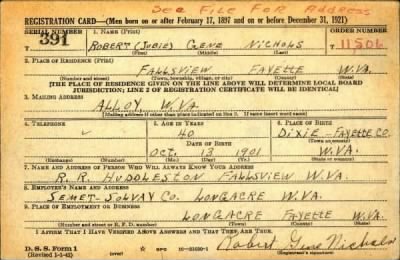 See File For Address
REGISTRATION CARD—(Men born on or after February 17, 1897 and on or before December 31, 1921)
SERIAL NUMBER 1. NAME (Print) ORDER NUMBER
391 Robert (Jubie) Gene Nichols 11506
(First) (Middle) (Last)
2. PLACE OF RESIDENCE (Print)
Fallsview Fayette W.VA.
(Number and street) (Town, township, village, or city) (County) (State)
[THE PLACE OF RESIDENCE GIVEN ON THE LINE ABOVE WILL DETERMINE LOCAL BOARD
JURISDICTION; LINE 2 OF REGISTRATION CERTIFICATE WILL BE IDENTICAL]
3. MAILING ADDRESS
Alloy, W.VA
[Mailing address if other than place indicated on line 2. If same insert word same]
4. TELEPHONE 5. AGE IN YEARS 6. PLACE OF BIRTH
40 Dixie-Fayette Co.
DATE OF BIRTH (Town or county)
Oct. 13 1901 W.VA.
(Exchange) (Number) (Mo.) (Day) (Yr.) (State or country)
7. NAME AND ADDRESS OF PERSON WHO WILL ALWAYS KNOW YOUR ADDRESS
R. R. Huddleston Fallsview W.VA.
8. EMPLOYER'S NAME AND ADDRESS
Semet-Solvay Co. Longacre W.VA.
9. PLACE OF EMPLOYMENT OR BUSINESS
Longacre Fayette W.VA.
(Number and street or R. F. D. number) (Town) (County) (State)
I AFFIRM THAT I HAVE VERIFIED ABOVE ANSWERS AND THAT THEY ARE TRUE.
D. S. S. Form 1
(Revised 1-1-42) Robert Gene Nichols